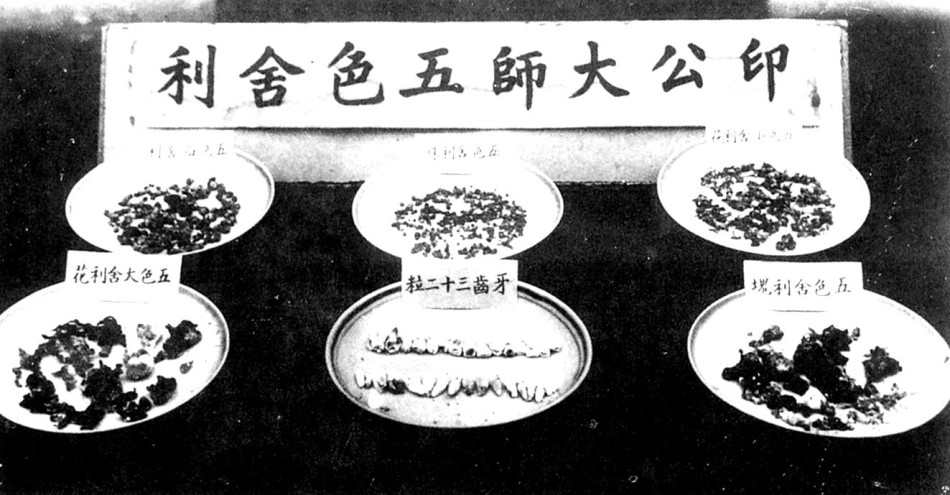 印公大師五色舍利
五色小舍利花
五色舍利
五色舍利塊
牙齒三十二粒
五色大舍利花